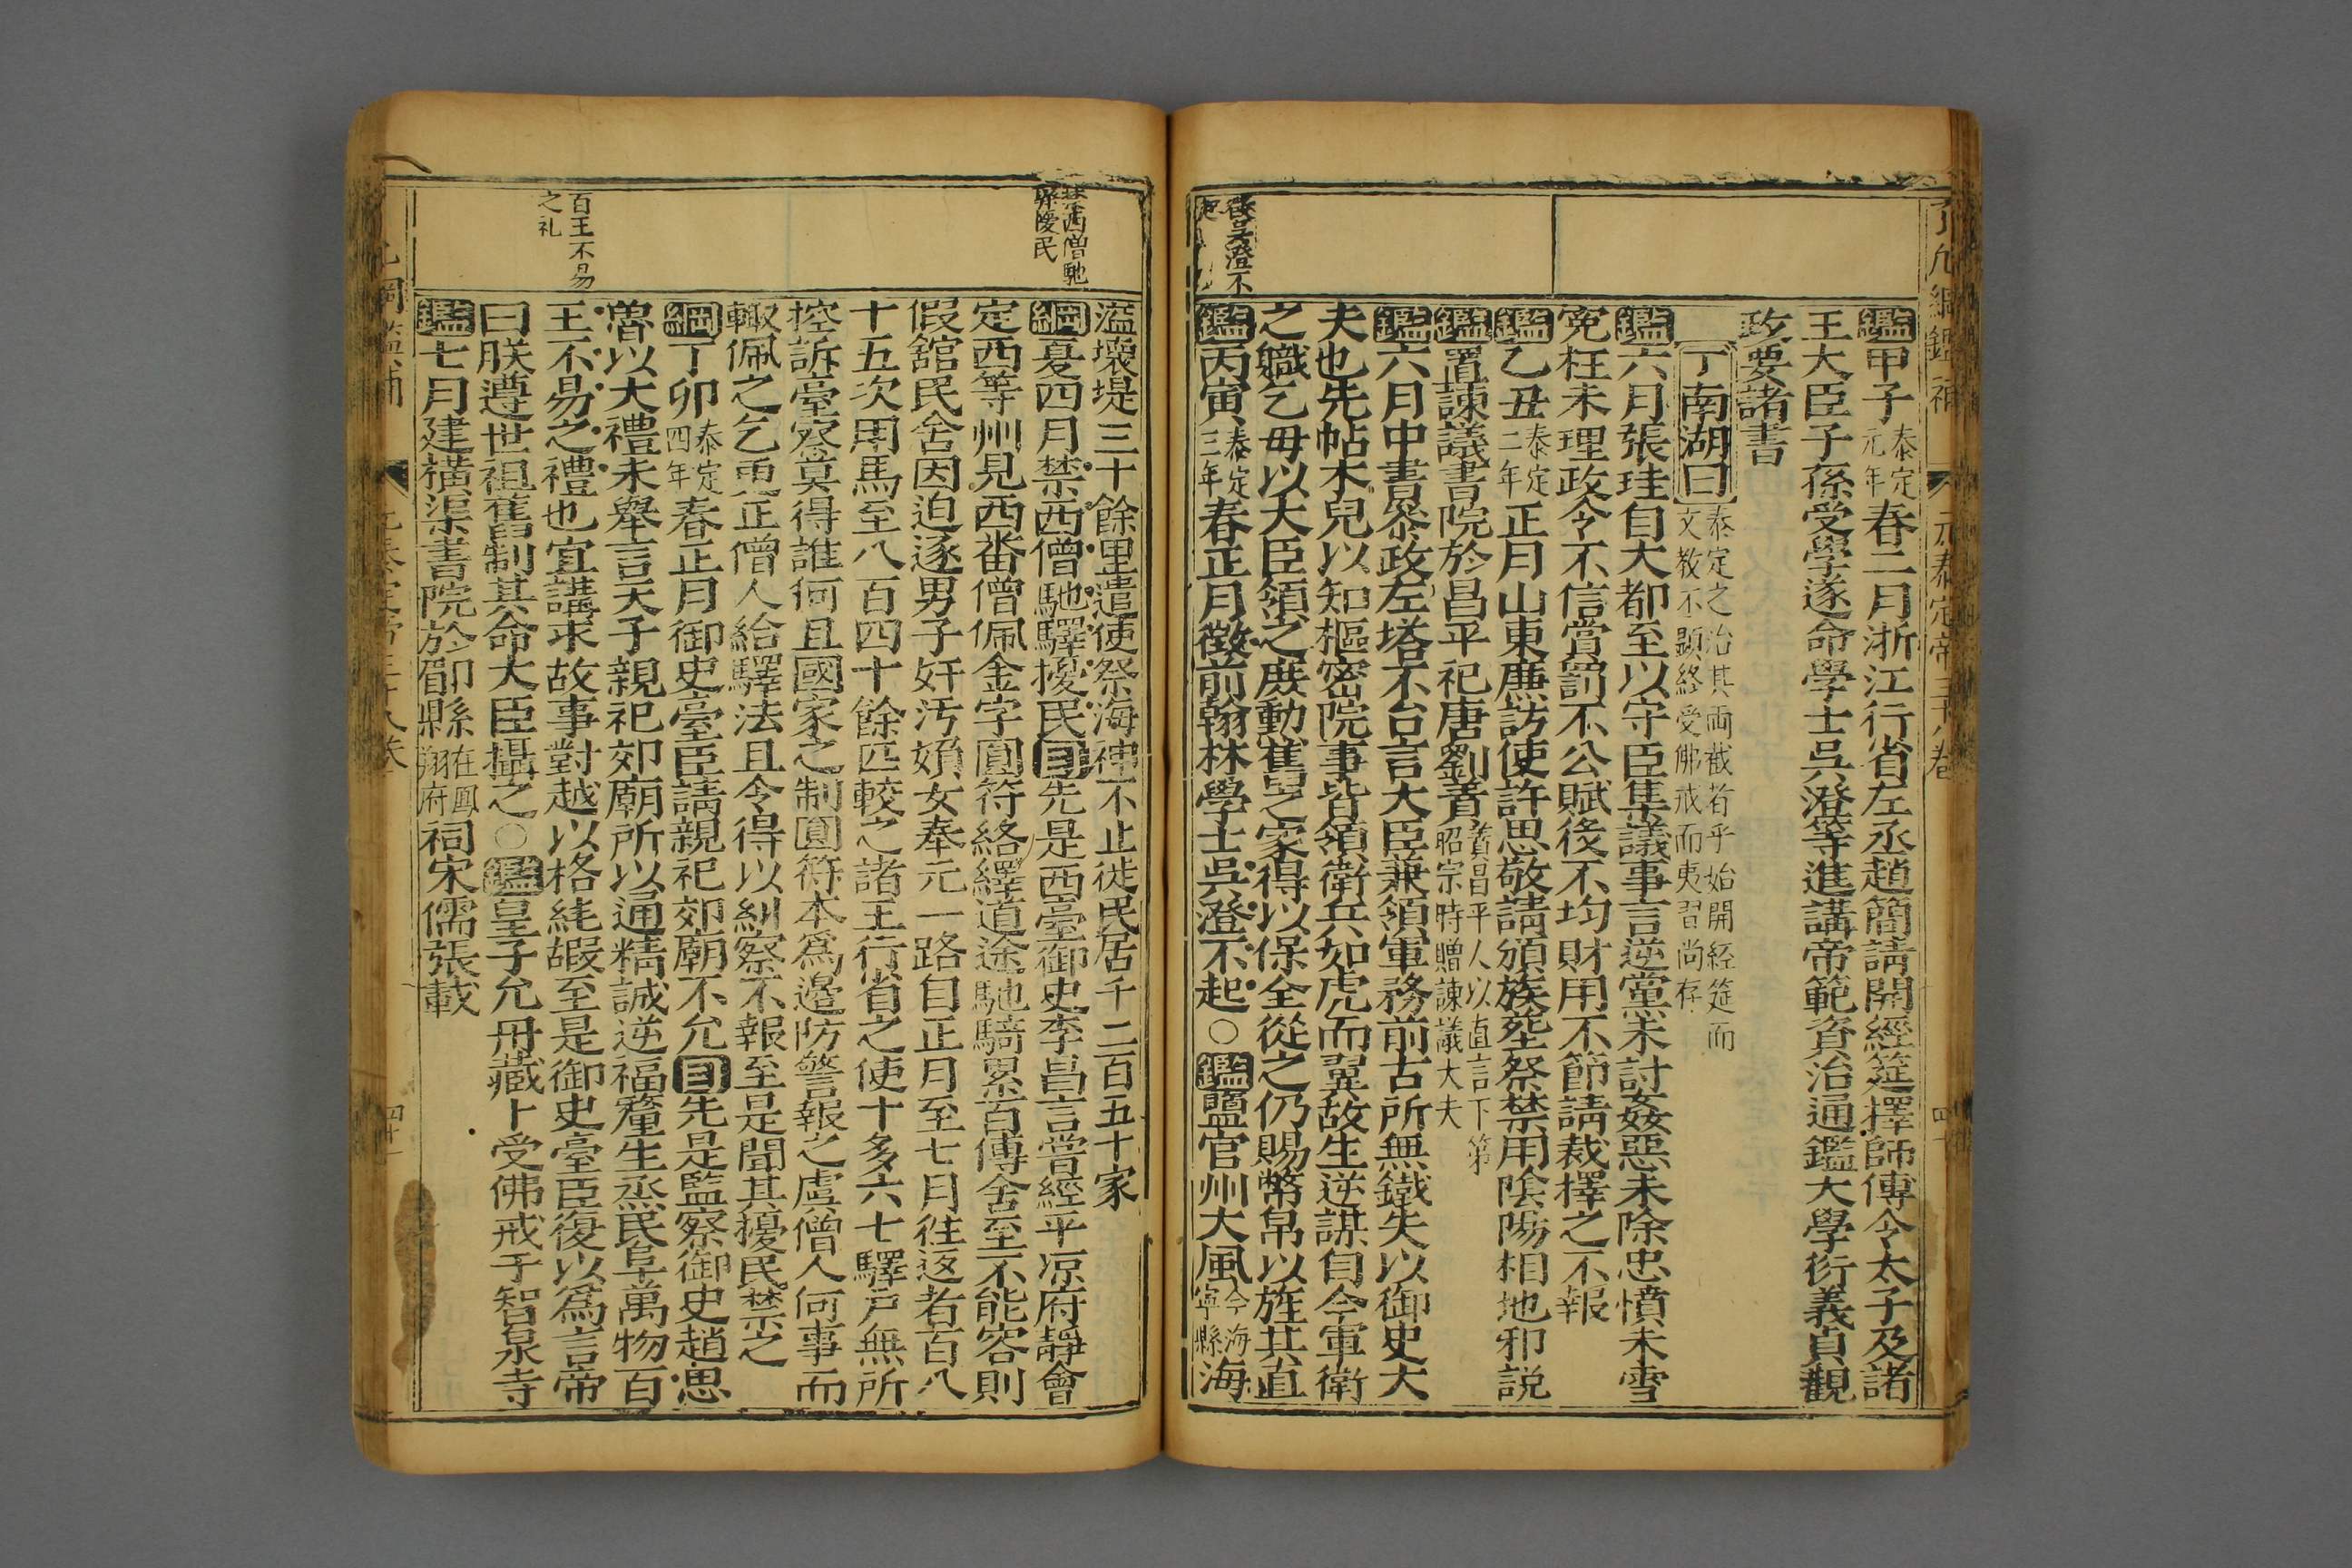 了凡綱鑑補
元泰定帝三十八卷
四十
鑑甲子泰定元年春二月浙江行省左丞趙簡請開經筵擇師傅令太子及諸
王大臣子孫受學遂命學士吳澄等進講帝範資治通鑑大學衍義貞觀
政要諸書
丁南湖曰泰定之治其兩截者乎始開經筵而文教不顯終受佛戒而夷習尚存
鑑六月張珪自大都至以守臣集議事言逆黨未討姦惡未除忠憤未雪
冤枉未理政令不信賞罰不公賦役不均財用不節請裁擇之不報
鑑乙丑泰定二年正月山東廉訪使許思敬請頒族塟祭禁用陰陽相地邪説
鑑置諫議書院於昌平祀唐劉蕡蕡昌平人以直言下第昭宗時贈諫議大夫
鑑六月中書叅政左塔不台言大臣兼領軍務前古所無鐵失以御史大
夫也先帖木兒以知樞密院事皆領衛兵如虎而翼故生逆謀自今軍衛
之職乞毋以大臣領之庶勳舊之家得以保全從之仍賜幣帛以旌其直
徵吳澄不
鑑丙寅三年泰定春正月徵前翰林學士吳澄不起○鑑鹽官州大風今海寧縣海
溢壞堤三十餘里遣使祭海神不止徙民居千二百五十家
禁西僧馳驛擾民
綱夏四月禁西僧馳驛擾民目先是西臺御史李昌言嘗經平凉府靜會
定西等州見西番僧佩金字圓符絡繹道途馳騎累百傳舍至不能容則
假舘民舍因迫逐男子奸汚婦女奉元一路自正月至七月往返者百八
十五次用馬至八百四十餘匹較之諸王行省之使十多六七驛戶無所
控訴臺察莫得誰何且國家之制圓符本爲邊防警報之虞僧人何事而
輙佩之乞更正僧人給驛法且令得以糾察不報至是聞其擾民禁之
綱丁卯泰定四年春正月御史臺臣請親祀郊廟不允目先是監察御史趙思
魯以大禮未舉言天子親祀郊廟所以通精誠逆福釐生烝民阜萬物百
百王不易之礼
王不易之禮也宜講求故事對越以格純嘏至是御史臺臣復以爲言帝
曰朕遵世祖舊制其命大臣攝之○鑑皇子允丹藏卜受佛戒于智泉寺
鑑七月建橫渠書院於郿縣在鳳翔府祠宋儒張載
四十一